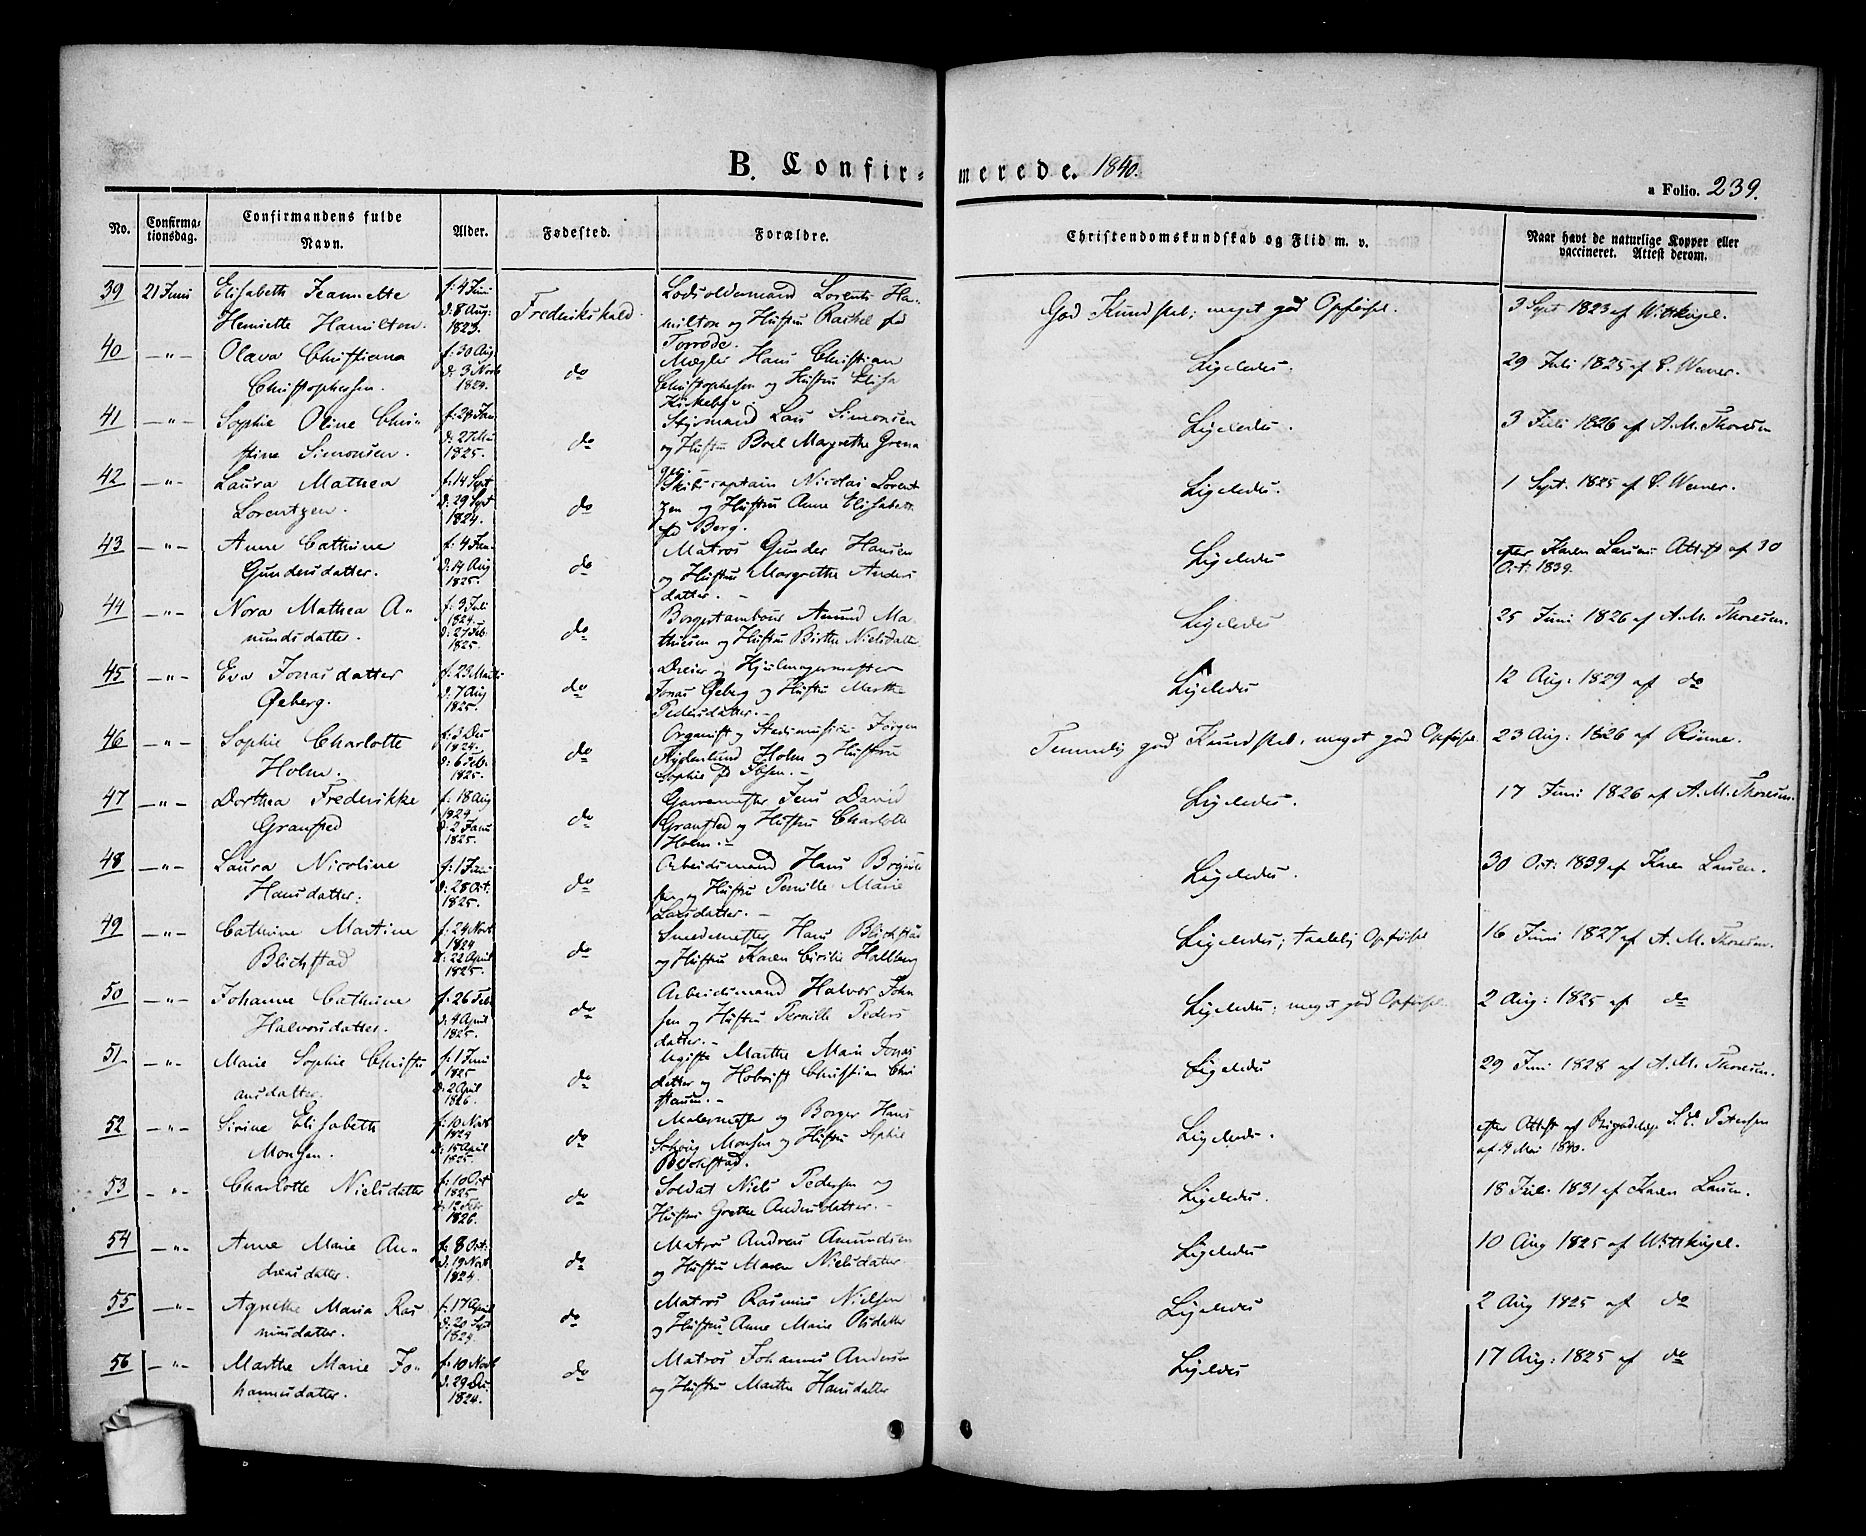 B. Confirmerede. 1840.
a Folio. 239.
No. Confirmationsdag. Confirmandens fulde Navn. Alder. Fødested. Forældre. Christendomskundskab og Flid m. v. Naar havt de naturlige Kopper eller vaccineret. Attest derom.
39 21 Juni Elisabeth Jeannette f: 4 Juni Lodsoldermand Lorents Ha-
Henriette Hamilton. d: 8 Aug: 1823. Frederikshald. milton og Hustru Rachel fød God Kundskab; meget god Opførsel. 3 Sept 1823 af Wittkugel.
Torrøde.
40 —"— Olava Christiana f: 30 Aug. Mægler Hans Christian
Christophersen. d: 3 Novb 1824. do Christophersen og Hustru Elisa Ligeledes. 29 Juli 1825 af C. Werner.
Kirkeby.
41 —"— Sophie Oline Chri= Styrmand Lars Simonsen
stine Simonsen. 1825. do og Hustru Boel Margrethe Grena Ligeledes. 3 Juli 1826 af A. M. Thoresen
42 —"— Laura Mathea f: 14 Sept Skibscaptain Nicolai Lorent
Lorentzen. d: 29 Sept 1824. do zen og Hustru Anne Elisabeth Ligeledes. 1 Sept. 1825 af C. Werner.
fød Berg.
43 —"— Anne Cathrine Matros Gunder Hansen
Gundersdatter. d: 14 Aug 1825. do og Hustru Margrethe Anders Ligeledes efter Karen Larsens Attest af 30
datter. — Oct: 1839.
44 —"— Nora Mathea A= f: 3 Juli 1824. Borgertambour Amund Ma-
mundsdatter. d: 27 Feb. 1825. do thiesen og Hustru Birthe Nielsdatter Ligeledes 25 Juni 1826 af A. M. Thoresen.
45 —"— Eva Jonasdatter f: 23 Marts Dreier og Hjulmagermester
Øeberg. d: 7 Aug 1825. do Jonas Øeberg og Hustru Marthe Ligeledes 12 Aug: 1829 af do
Pedersdatter. —
46 —"— Sophie Charlotte 1824. Organist og Stadsmusicus Jørgen
Holm. d: 6 Feb: 1825. do Holm og Hustru Temmelig god Kundskab, meget god Opførsel. 23 Aug: 1826 af Rönne.
Sophie fød Ibsen. —
47 —"— Dorthea Frederikke f: 18 Aug 1824 Garvemester Jens David
Gransted d: 2 Janu 1825. do Gransted og Hustru Charlotte Ligeledes. 17 Juni 1826 af A. M. Thoresen.
Holm. —
48 —"— Laura Nicoline f: 1 Juni Arbeidsmand Hans
Hansdatter. d: 28 Oct: 1825. do sen og Hustru Pernille Marie Ligeledes. 30 Oct: 1839 af Karen Larsen.
Larsdatter. —
49 —"— Cathrine Martine f: 24 Novb 1824 Smedemester Hans Blichstad
Blichstad d: 22 April 1825. do og Hustru Karen Cicilie Hallberg Ligeledes; taalelig Opførsel 16 Juni 1827 af A. M. Thoresen.
50 —"— Johanne Cathrine f: 26 Feb: Arbeidsmand Halvor John
Halvorsdatter. d: 4 April 1825. do sen og Hustru Pernille Peders Ligeledes; meget god Opførsel. 2 Aug: 1825 af do
datter. —
51 —"— Marie Sophie Christi f: 1 Juni 1825 Ugifte Marthe Marie Jonas
ansdatter. d: 2 April 1826. do datter og Hoboist Christian Chri Ligeledes 29 Juni 1828 af A. M. Thoresen.
stensen. —
52 —"— Sirine Elisabeth f: 10 Novb 1824 Malermester og Borger Hans
Monsen. d: 15 April 1825. do Solvig Monsen og Hustru Sophie Ligeledes. efter Attest af S. C. Petersen
Blichstad. af 4 Mai 1840.
53 —"— Charlotte Nielsdatter f: 10 Oct 1825 Soldat Niels Pedersen og
d: 12 Febr 1826. do Hustru Grethe Andersdatter. — Ligeledes. 18 Juli 1831 af Karen Larsen.
54 —"— Anne Marie An- f: 8 Oct: Matros Andreas Amundsen
dreasdatter. d: 19 Novb 1824. do og Hustru Maren Nielsdatter Ligeledes 10 Aug 1825 af Wittkugel.
55 —"— Agnethe Maria Ras f: 17 April Matros Rasmus Nielsen
musdatter. d: 20 Sept 1824. do og Hustru Anne Marie Olsdatter Ligeledes 2 Aug 1825 af do
56 —"— Marthe Marie Jo= f: 10 Novb Matros Johannes Andersen
hannesdatter. d: 29 Dec: 1824. do og Hustru Marthe Hansdatter Ligeledes 17 Aug: 1825 af do